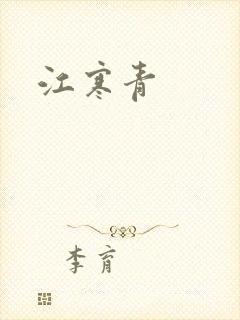 江寒青
李育